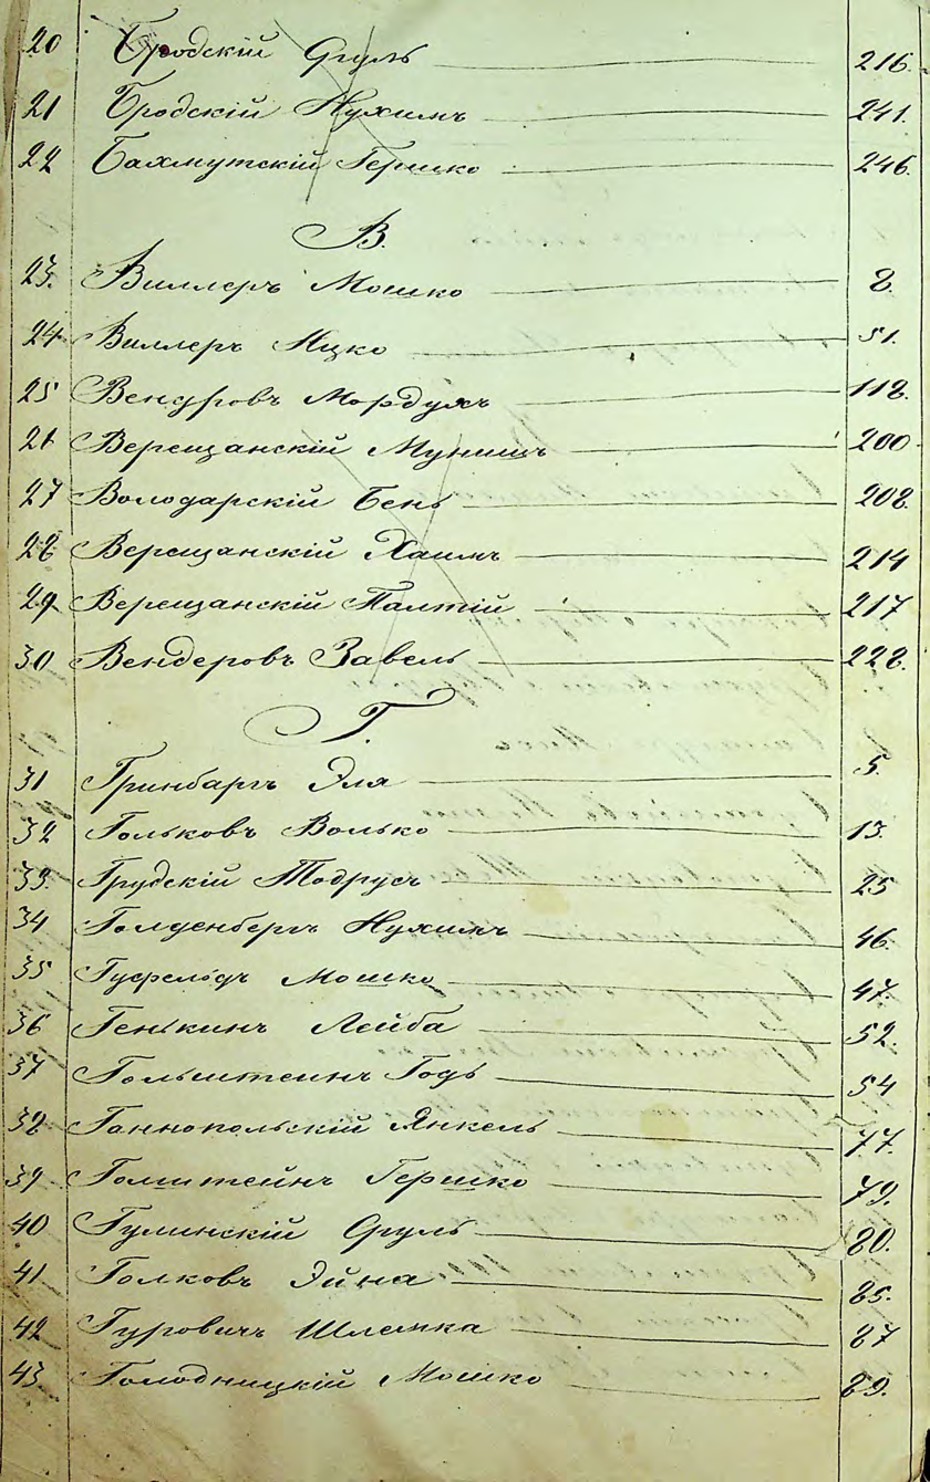 20 Бродскій Сруль 216.
21 Бродскій Нухимъ 241.
22 Бахмутскій Гершко 246.
В.
23. Виллеръ Мошко 8.
24 Виллеръ Ицко 51.
25 Вендровъ Мордухъ 118.
26 Верещанскій Мунишъ 200
27 Володарскій Бень 208.
28 Верещанскій Хаимъ 214
29 Верещанскій Палтій 217
30 Вендеровъ Завель 228.
Г.
31 Гринбаргъ Эля 5.
32 Гольковъ Волько 13.
33. Грудскій Тодрусъ 25
34 Голденбергъ Нухимъ 46.
35 Гусфельдъ Мошко 47.
36 Генькинъ Лейба 52.
37 Гольштеинъ Годъ 54
38 Ганнопольскій Янкель 77.
39 Голштейнъ Гершко 79.
40 Гулинскій Сруль 80.
41 Голковъ Эйна 85.
42 Гуровичъ Шлемка 87
43. Голодницкій Мошко 89.